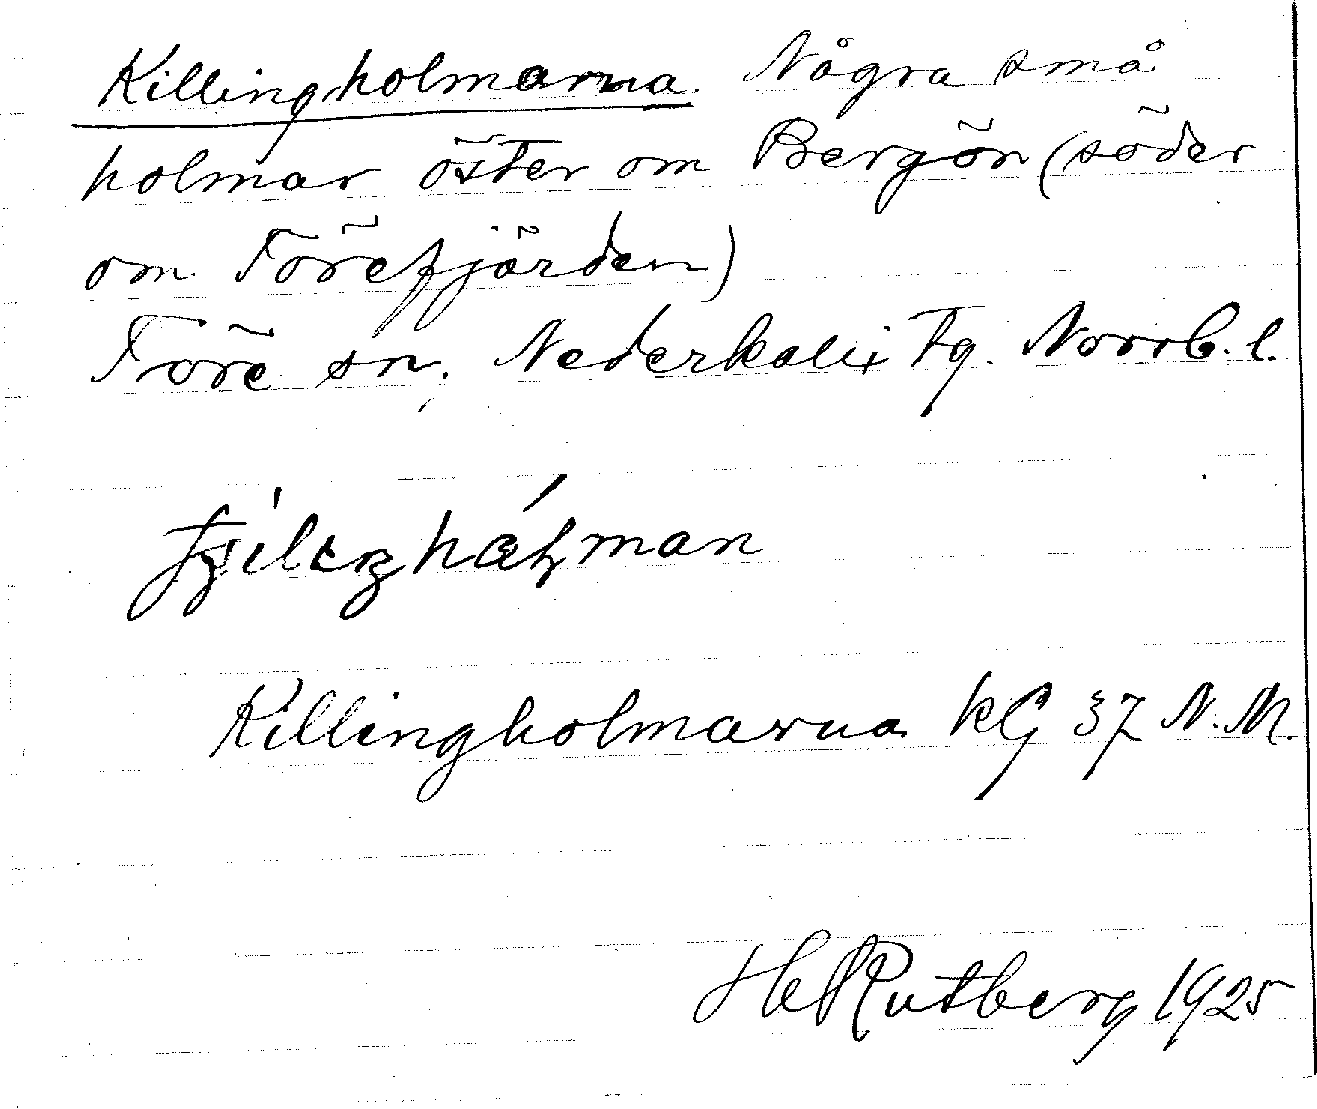 Killingholmarna. Några små
holmar öster om Bergön (söder
om Törefjärden)
Töre sn. Nederkalix tg. Norrb. l.
Killingholmarna kG 37 N. M.
H Rutberg 1925